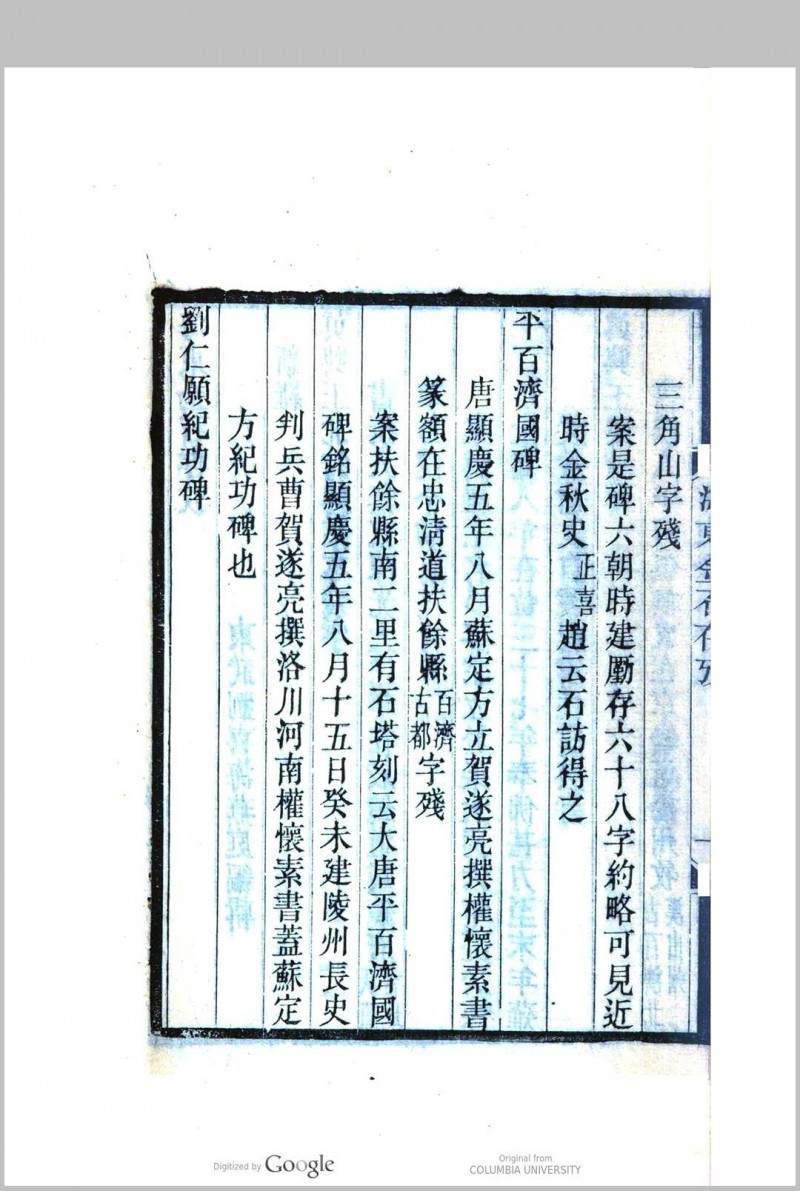 三角山字殘
案是碑六朝時建勵存六十八字約略可見近
時金秋史正喜趙云石訪得之
平百濟國碑
唐顯慶五年八月蘇定方立賀遂亮撰權懷素書
篆額在忠清道扶餘縣百濟古都字殘
案扶餘縣南二里有石塔刻云大唐平百濟國
碑銘顯慶五年八月十五日癸未建陵州長史
判兵曹賀遂亮撰洛川河南權懷素書蓋蘇定
方紀功碑也
劉仁願紀功碑
Digitized by Google
Original from
COLUMBIA UNIVERSITY